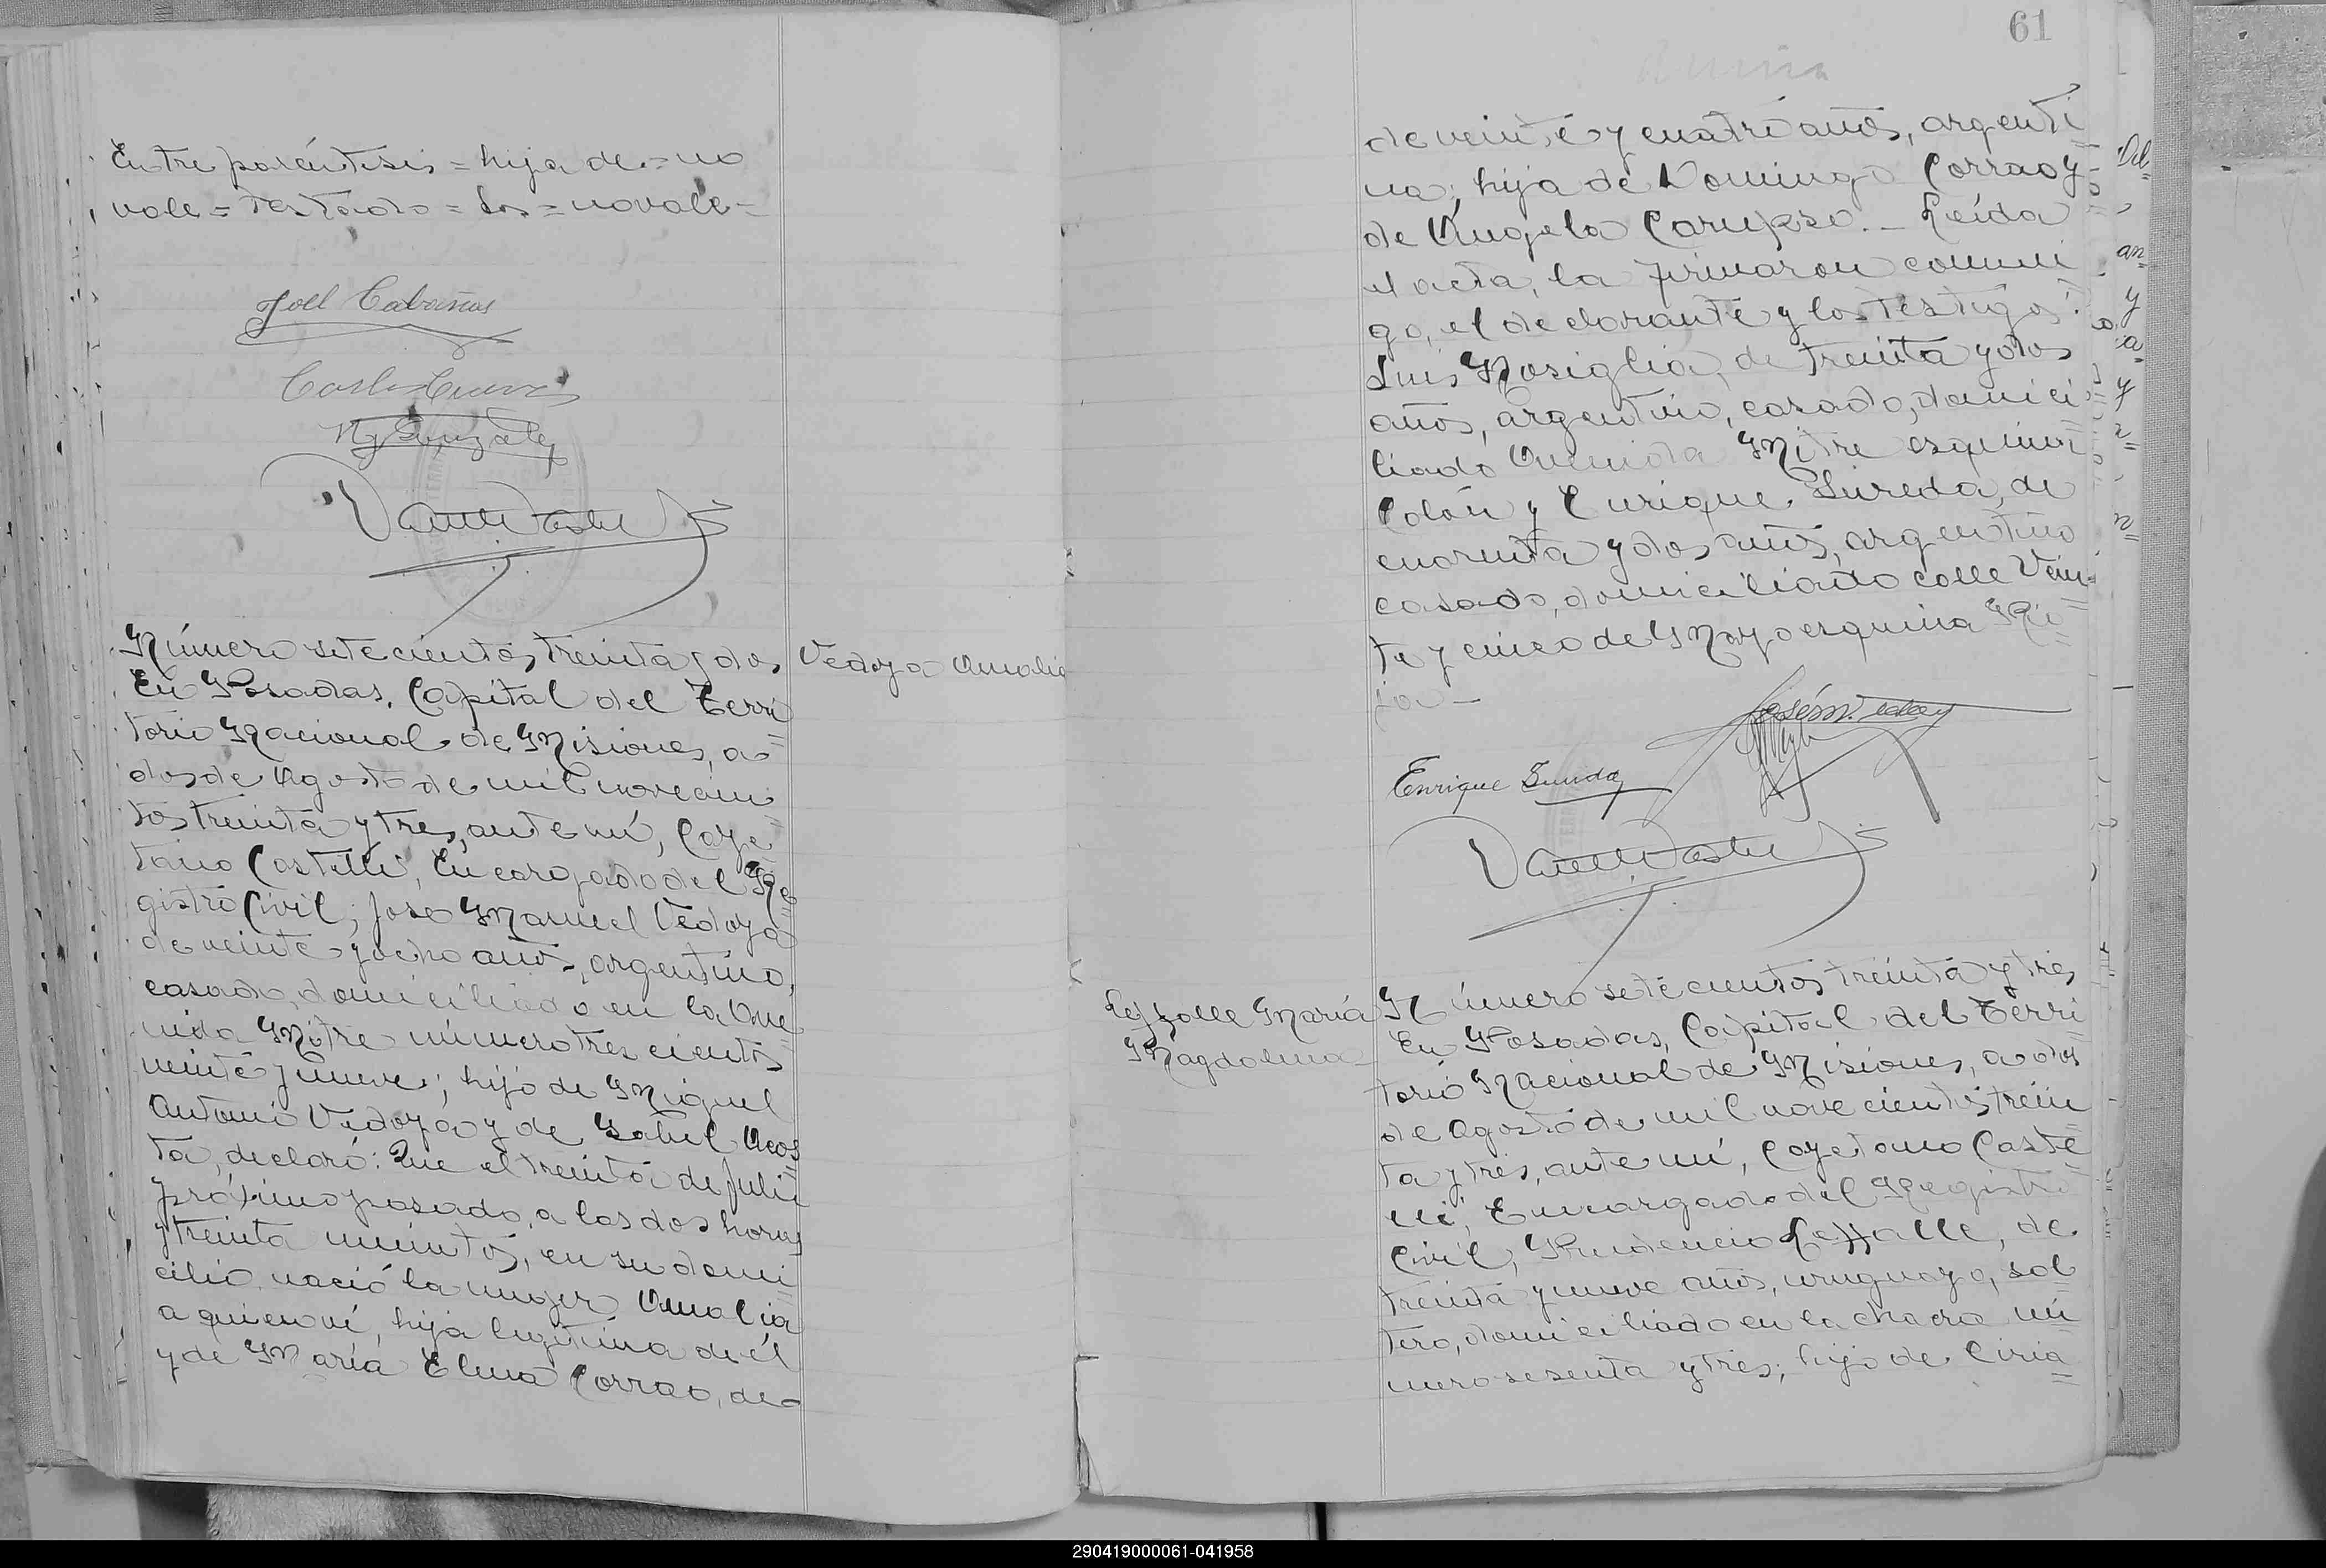 Entre paréntesis = hija de = no
vale = Testado = los = no vale =
Joel Cabañas
Carlos
González
Número setecientos treinta y dos
Vedoya Amalia
En Posadas, Capital del Terri
torio Nacional de Misiones, a
dos de Agosto de mil novecien
tos treinta y tres, ante mí, Caye
tano Castelli, Encargado del Re
gistro Civil; José Manuel Vedoya
de veinte y ocho años, argentino,
casado, domiciliado en la Ave
nida Mitre número tres cientos
veinte y nueve; hijo de Miguel
Antonio Vedoya y de Isabel Acos
ta, declaró: Que el treinta de Julio
próximo pasado, a las dos horas
y treinta minutos, en su domi
cilio nació la mujer Amalia
a quien ví, hija legítima de él
y de María Elena Corrao, de
61
de veinte y cuatro años, argenti
na; hija de Domingo Corrao y
de Angela Carupso. _ Leída
el acta, la firmaron conmi
go, el declarante y los testigos:
Luis Mosiglia, de treinta y dos
años, argentino, casado, domici
liado Avenida Mitre esquina
Colón y Enrique Sureda, de
cuarenta y dos años, argentino
casado, domiciliado calle Vein
te y cinco de Mayo esquina Rio
ja _
José M. Vedoya
Enrique Sureda
Lezzalle María
Magdalena
Número setecientos treinta y tres
En Posadas, Capital del Terri
torio Nacional de Misiones, a dos
de Agosto de mil novecientos trein
ta y tres, ante mí, Cayetano Caste
lli, Encargado del Registro
Civil, Prudencio Lezzalle, de
treinta y nueve años, uruguayo, sol
tero, domiciliado en la chacra nú
mero sesenta y tres; hijo de Ciria
290419000061-041958